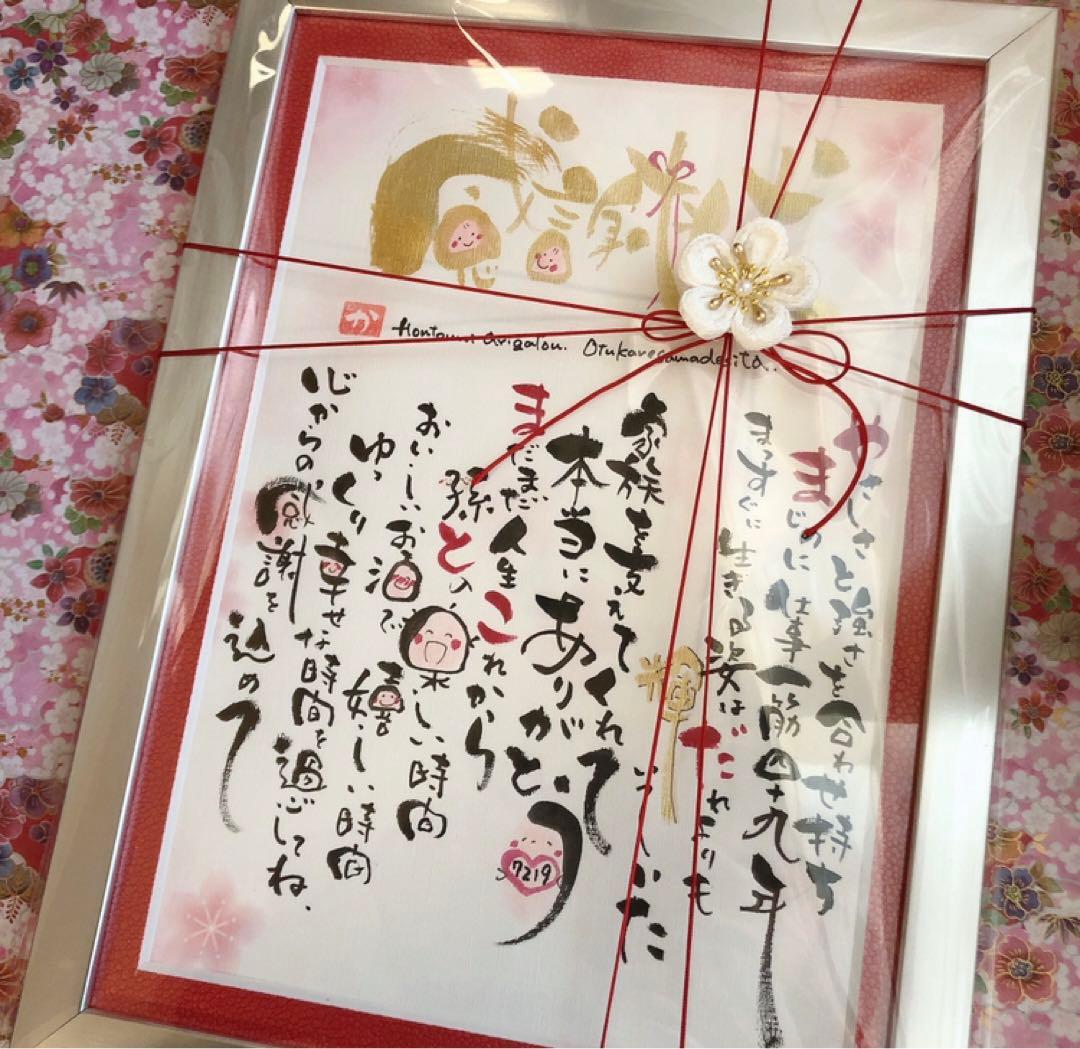 感謝状
か
Hontouni arigatou. Otukaresamadesita..
やさしさと強さを合わせ持ち
まじめに仕事一筋四十九年
まっすぐに生きる姿はだれよりも
輝いていた
家族を支えてくれて
本当にありがとう
7219
まだまだ人生これから
孫との楽しい時間
おいしいお酒で嬉しい時間
ゆっくり幸せな時間を過ごしてね、
心からの感謝を込めて